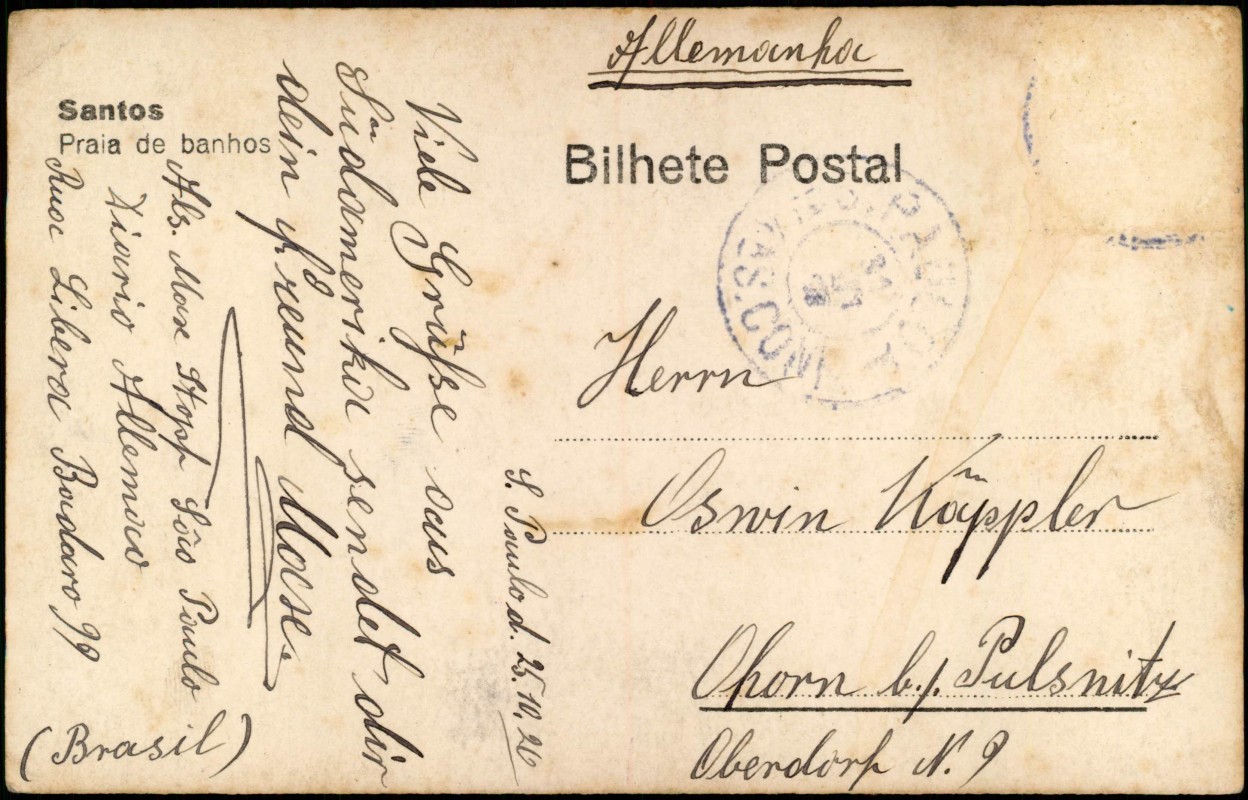 Allemanha
Bilhete Postal
Santos
Praia de banhos
S. Paulo d. 25.10.26
Viele Grüße aus
Südamerika sendet dir
dein Freund Max.
Abs. Max Stopf São Paulo
Diario Allemao
Rua Libera Badaro 99
(Brasil)
S. PAUL
Herrn
Oswin Käppler
Ohorn b./. Pulsnitz
Oberdorf N. 9